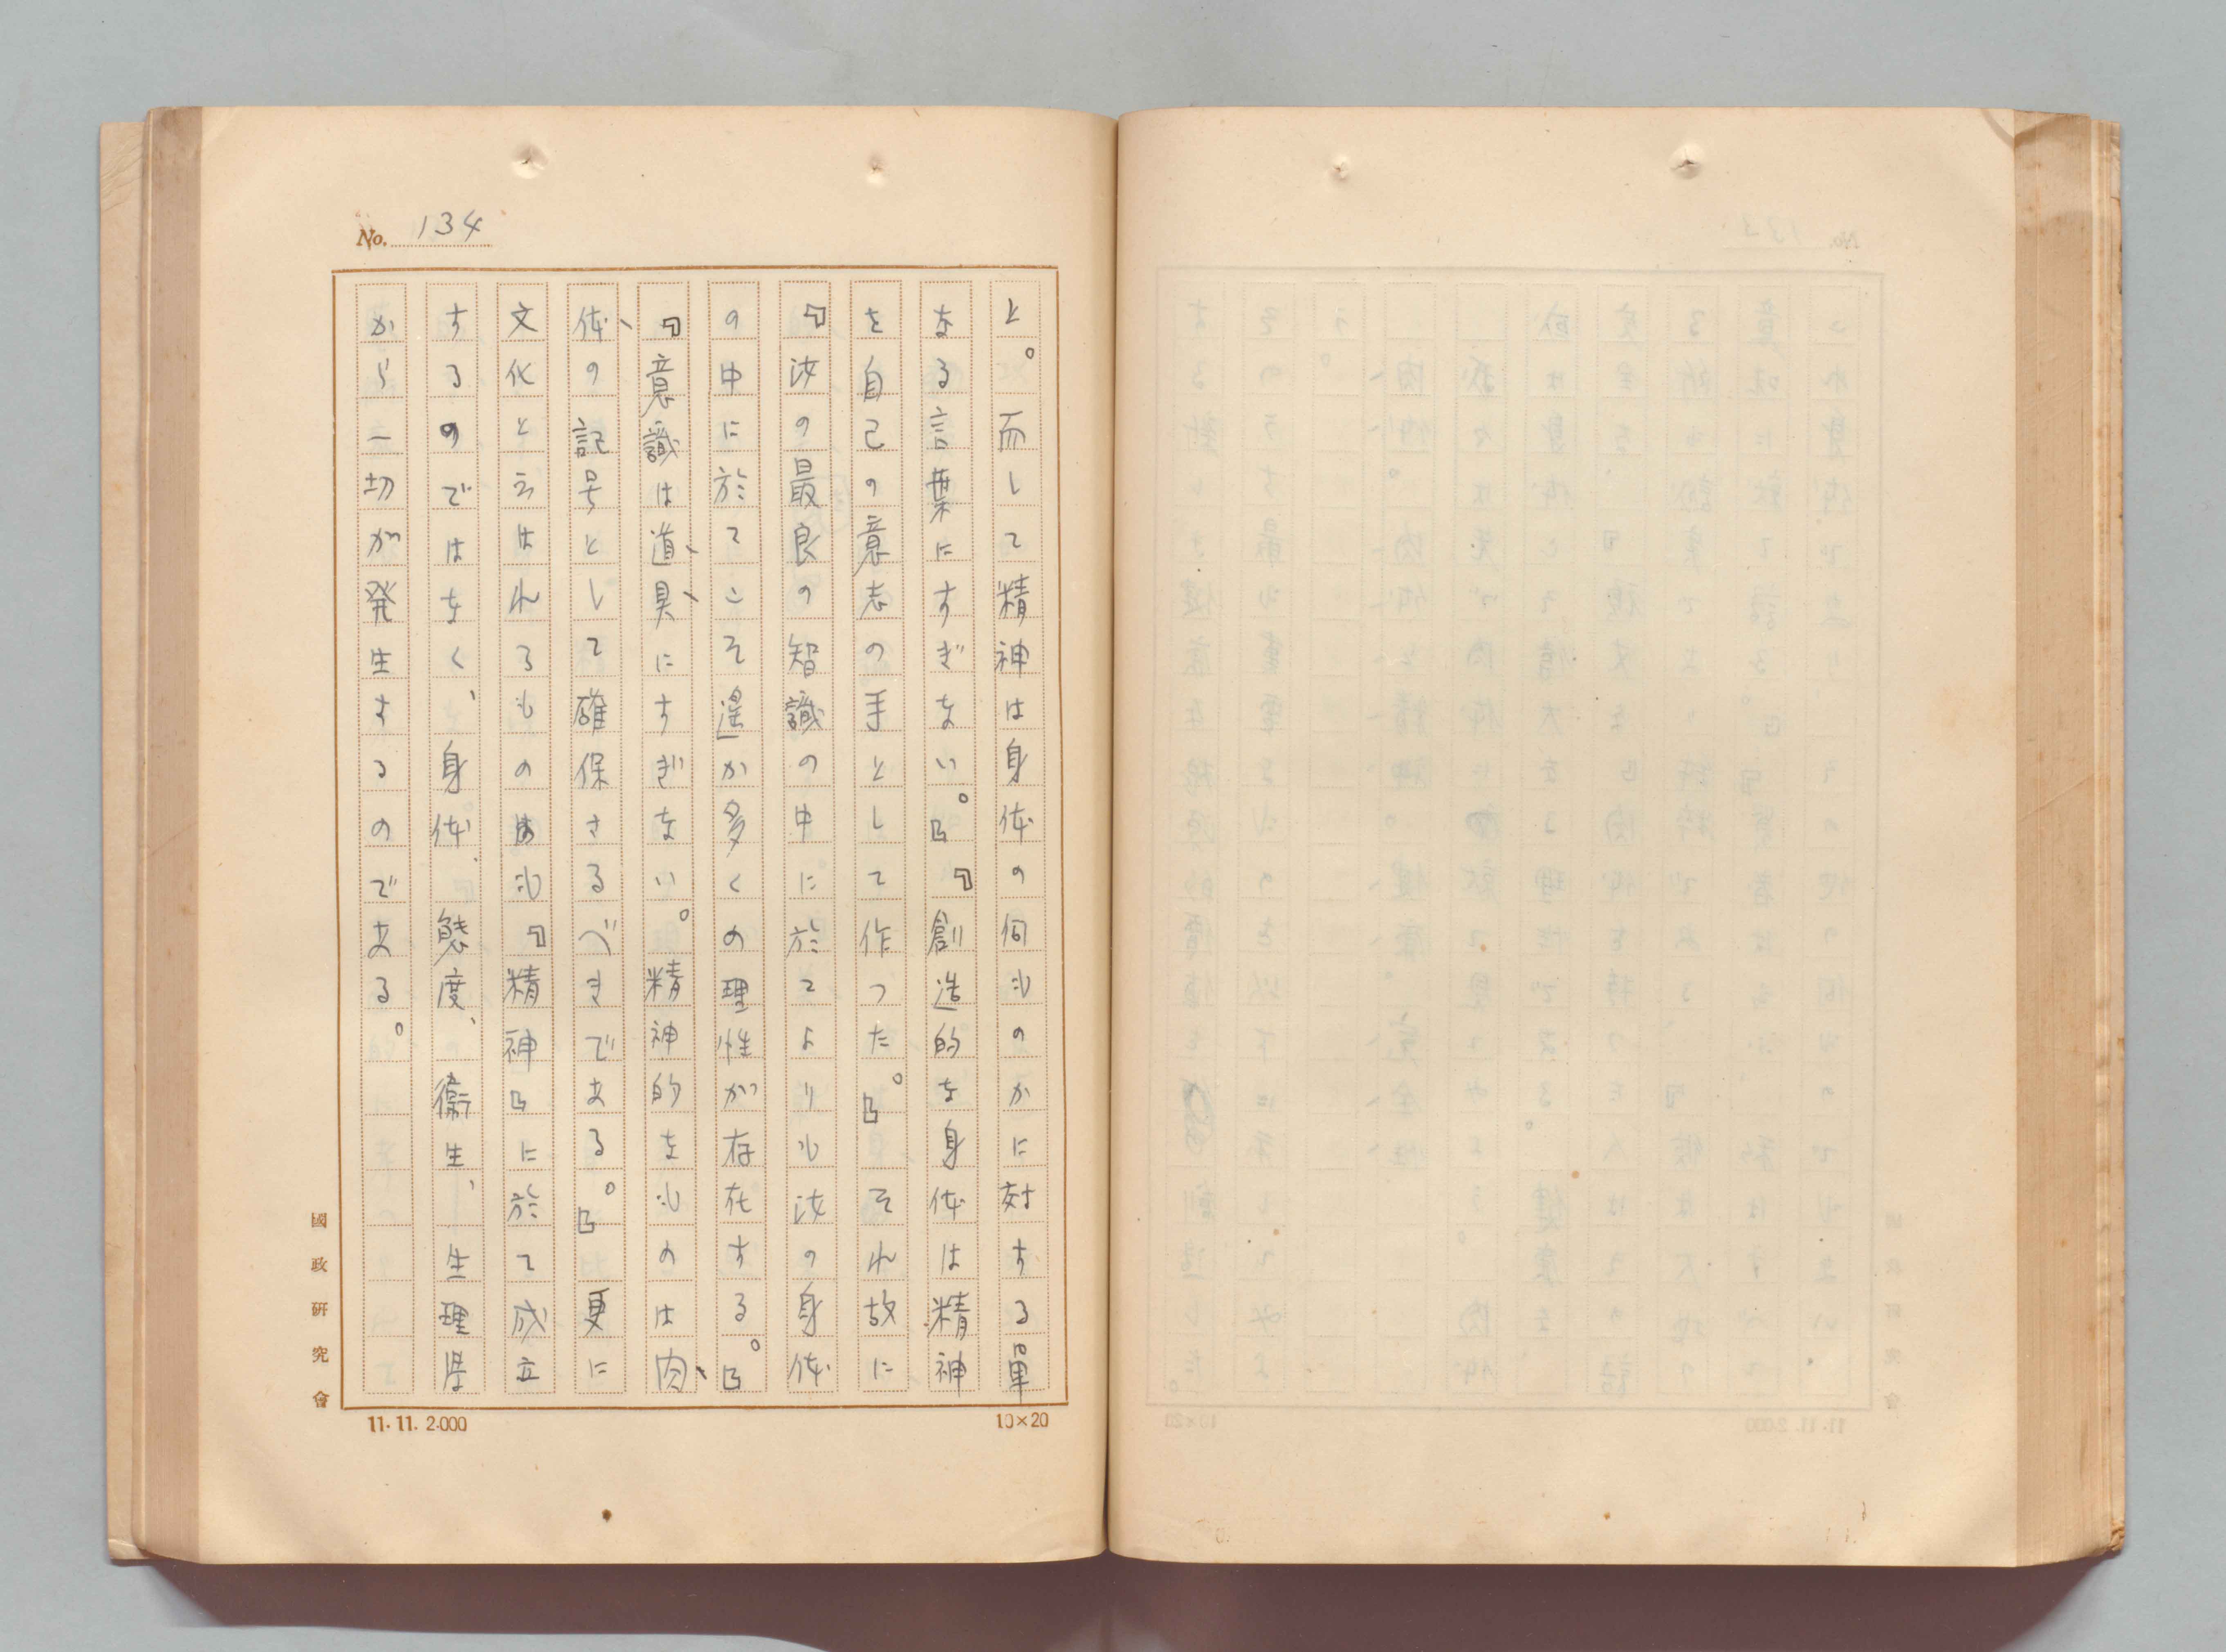 No. 134
と。而して精神は身体の何ものかに対する単
なる言葉にすぎない。』『創造的な身体は精神
を自己の意志の手として作つた。』それ故に
『汝の最良の智識の中に於てよりも汝の身体
の中に於てこそ遥か多くの理性が存在する。』
『意識は道具にすぎない。精神的なものは肉
体の記号として確保さるべきである。』更に
文化と云はれるものはも『精神』に於て成立
するのではなく、身体、態度、衛生、生理学
から一切が発生するのである。
國政研究會
11.11.2.000
10×20